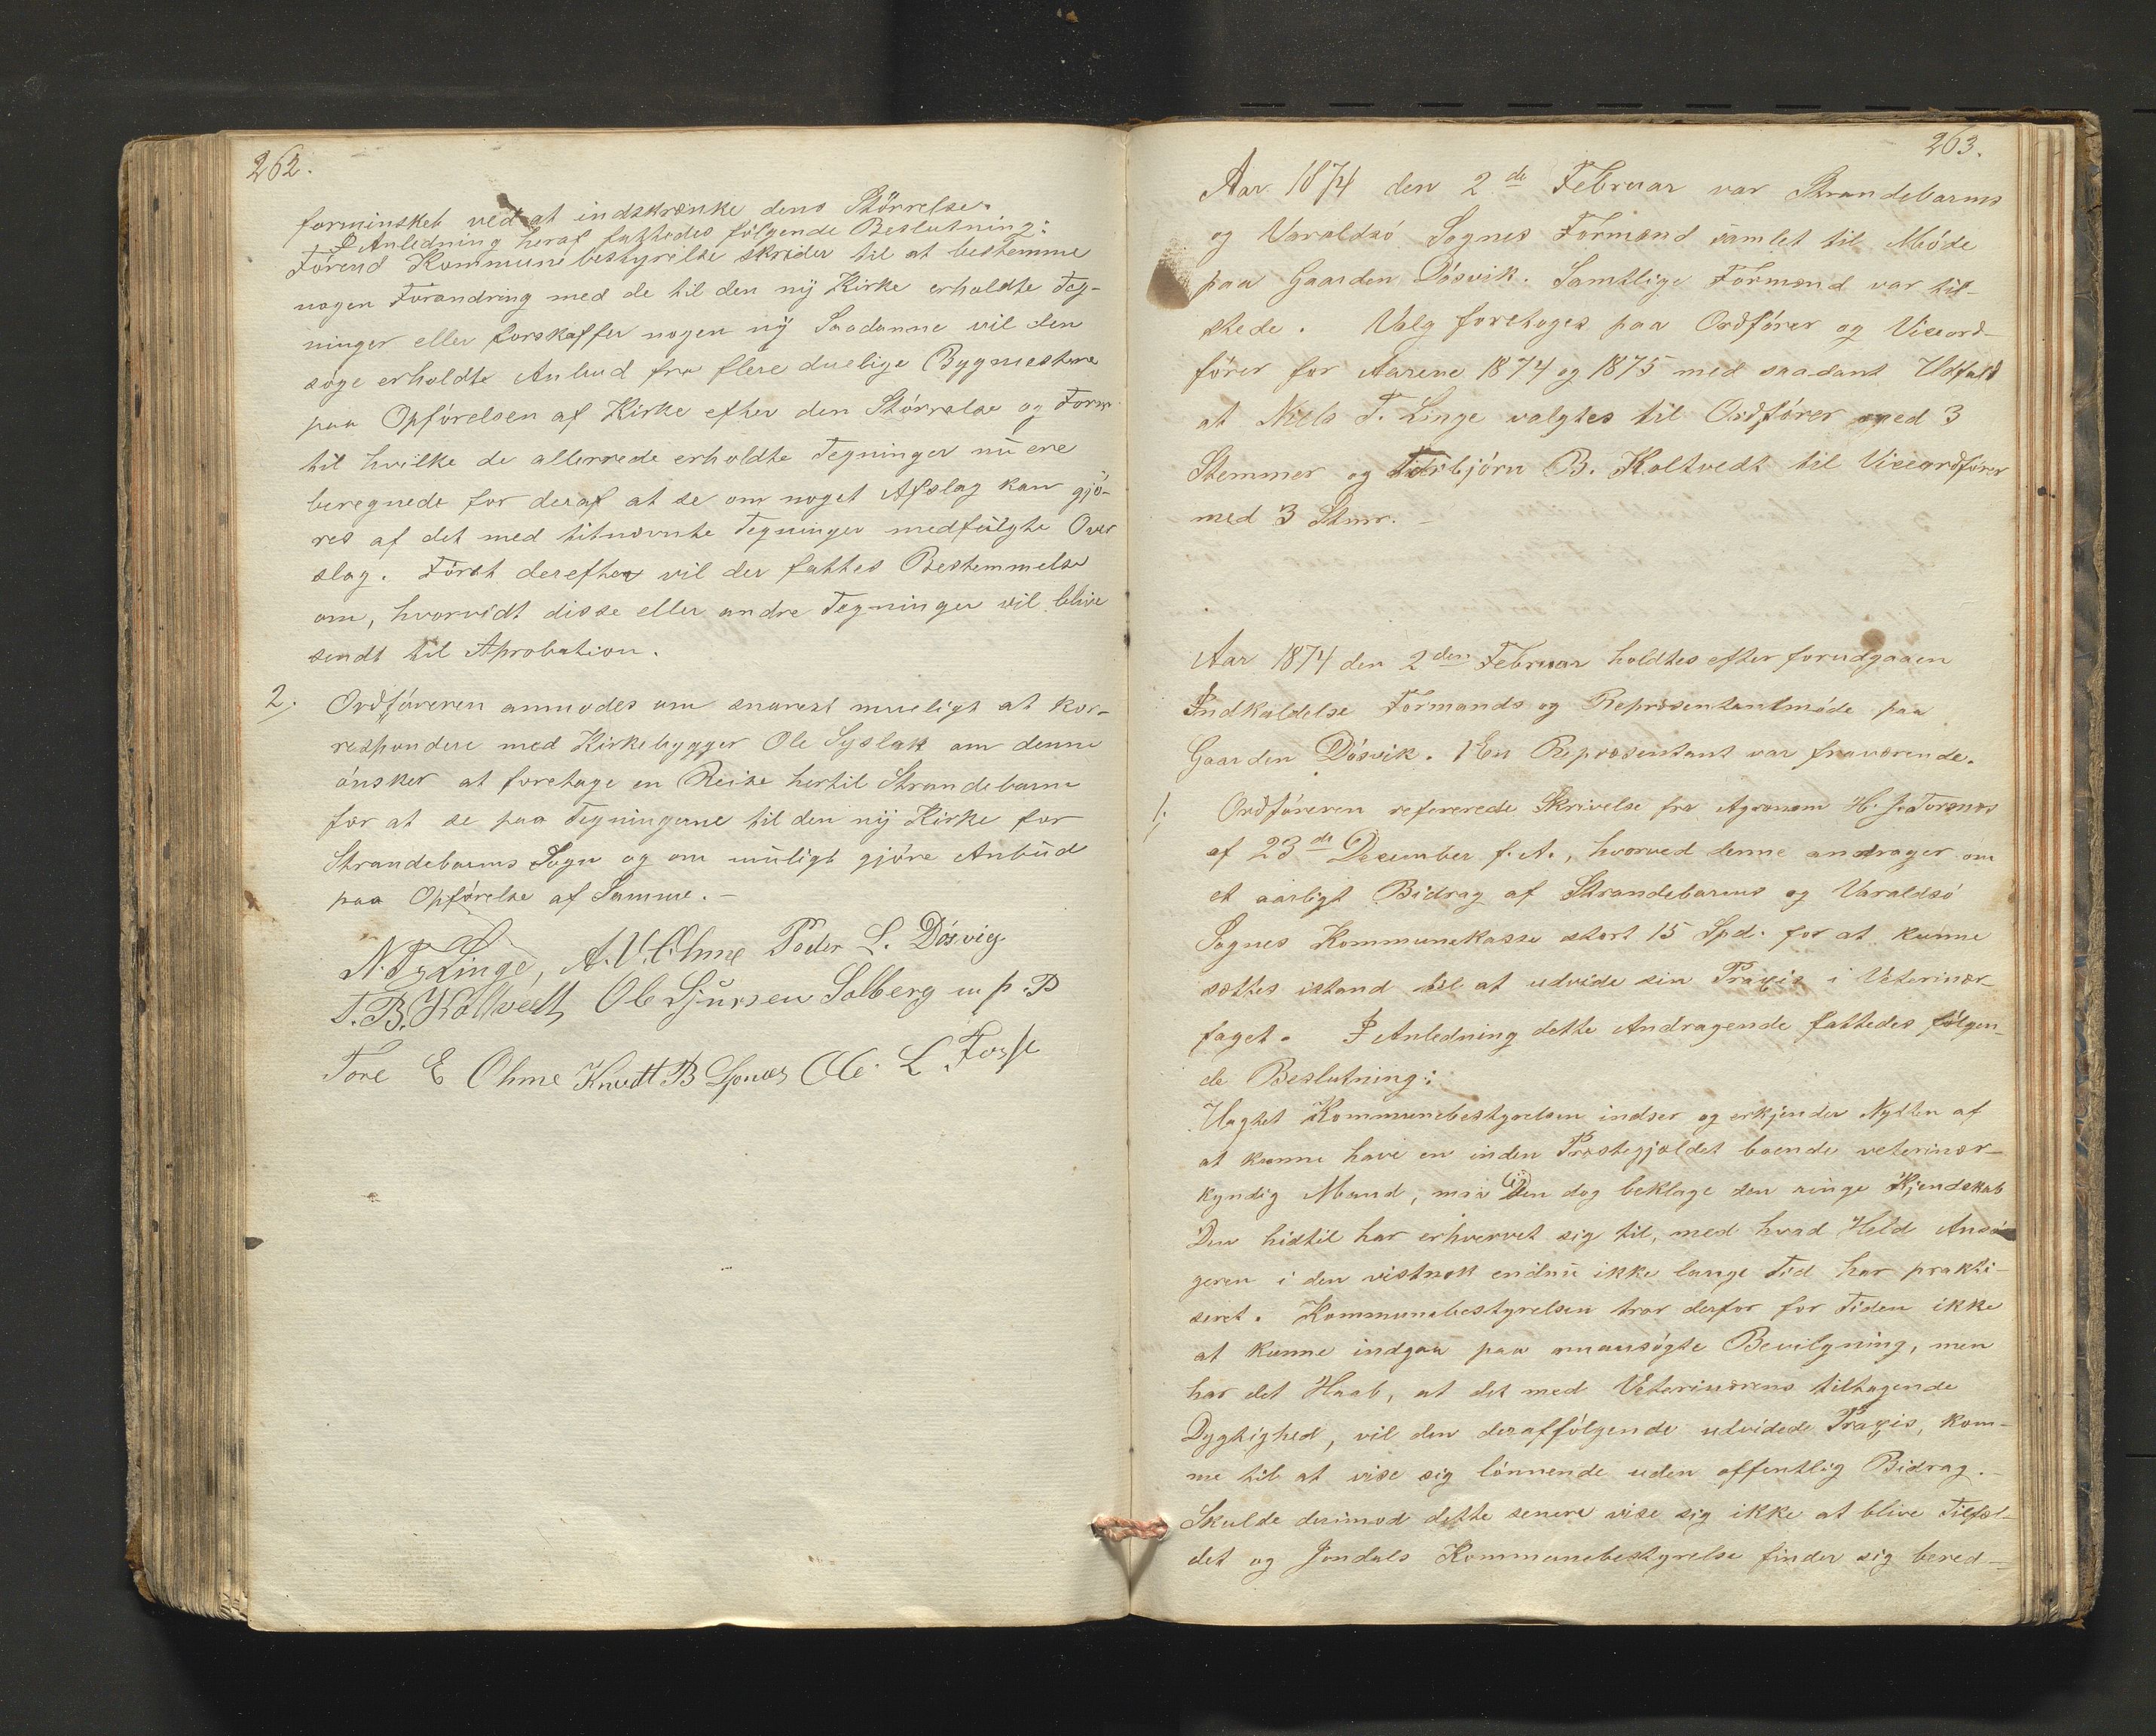 262.
forminsket ved at indskrænke dens Störrelse.
I Anledning heraf fattedes fölgende Beslutning:
Förend Kommunebestyrelse skrider til at bestemme
nogen Forandring med de til den nÿ Kirke erholdte Teg-
ninger eller forskaffer nogen nÿ Saadanne vil den
söge erholdte Anbud fra flere duelige Bygmestere
paa Opförelsen af Kirke efter den Störrelse og Form
til hvilke de allerrede erholdte Tegninger nu ere
beregnede for deraf at se om noget Afslag kan gjö-
res af det med titnævnte Tegninger medfülgte Over
slag. Först derefter vil der fattes Bestemmelse
om, hvorvidt disse eller andre Tegninger vil blive
sendt til Aprobation.
2. Ordföreren anmodes om snarest mueligt at kor-
respondere med Kirkebygger Ole Syslak om denne
önsker at foretage en Reise hertil Strandebarm
for at se paa Tegningerne til den nÿ Kirke for
Strandebarms Sogn og om muligt gjöre Anbud
paa Opförelse af Samme. –
N. T. Linge, A. V. Ohme Peder L. Dösvig
T. B. Koltvedt Ole Sjursen Solberg m p. P
Tore E Ohme Knudt B Ljones Ole L. Fosse
263.
Aar 1874 den 2de Februar var Strandebarms
og Varaldsö Sognes Formænd samlet til Möde
paa Gaarden Dösvik. Samtlige Formænd var til-
stede. Valg foretoges paa Ordförer og Viceord-
förer for Aarene 1874 og 1875 med saadant Udfald
at Niels T. Linge valgtes til Ordförer med 3
Stemmer og Torbjörn B. Koltvedt til Viceordförer
med 3 Stmr. –
Aar 1874 den 2den Februar holdtes efter forudgaaen
Indkaldelse Formands og Repræsentantmöde paa
Gaarden Dösvik. 1 En Repræsentant var fraværende.
1. Ordföreren refererede Skrivelse fra Agronom H. J. Torsnæs
af 23de December f. A., hvorved denne andrager om
et aarligt Bidrag af Strandebarms og Varaldsö
Sognes Kommunekasse stort 15 Spd. for at kunne
sættes istand til at udvide sin Praxis i Veterinær-
faget. I Anledning dette Andragende fattedes fölgen-
de Beslutning:
Uagtet Kommunebestyrelsen indser og erkjender Nytten af
at kunne have en inden Præstegjældet boende veterinær-
kyndig Mand, maa den dog beklage den ringe Kjendskab
Den hidtil har erhvervet sig til, med hvad Held Ansö
geren i den vistnok endnu ikke lange Tid har prakti-
seret. Kommunebestyrelsen tror derfor for Tiden ikke
at kunne indgaa paa omansögte Bevilgning, men
har det Haab, at det med Veterinærens tiltagende
Dygtighed, vil den deraffölgende udvidede Praxis, kom-
me til at vise sig lönnende uden offentlig Bidrag. –
Skulde derimod dette senere vise sig ikke at blive Tilfæl-
det og Jondals Kommunebestyrelse finder sig bered-